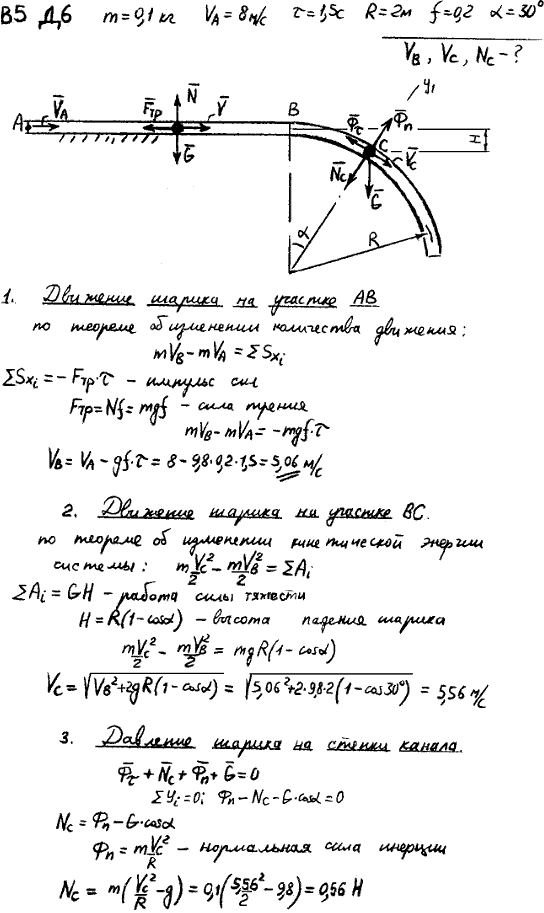 В5 Д6 m=0,1 кг V_A=8 м/с τ=1,5с R=2м f=0,2 α=30°
V_B, V_C, N_C - ?
y₁
N̄ B Φ̄_n
A V̄_A F̄_тр V̄ Φ̄_τ C H
Ḡ N̄_C V̄_C
Ḡ
α R
1. Движение шарика на участке АВ
по теореме об изменении количества движения:
mV_B - mV_A = ΣS_xi
ΣS_xi = - F_тр·τ - импульс сил
F_тр = Nf = mgf - сила трения
mV_B - mV_A = -mgf·τ
V_B = V_A - gf·τ = 8 - 9,8·0,2·1,5 = 5,06 м/с
2. Движение шарика на участке ВС.
по теореме об изменении кинетической энергии
системы: mV_C²/2 - mV_B²/2 = ΣA_i
ΣA_i = GH - работа силы тяжести
H = R(1-cosα) - высота падения шарика
mV_C²/2 - mV_B²/2 = mgR(1-cosα)
V_C = √(V_B²+2gR(1-cosα)) = √(5,06²+2·9,8·2(1-cos30°)) = 5,56 м/с
3. Давление шарика на стенки канала.
Φ̄_τ + N̄_C + Φ̄_n + Ḡ = 0
ΣY_i = 0; Φ_n - N_C - G·cosα = 0
N_C = Φ_n - G·cosα
Φ_n = mV_C²/R - нормальная сила инерции
N_C = m(V_C²/R - g) = 0,1(5,56²/2 - 9,8) = 0,56 Н